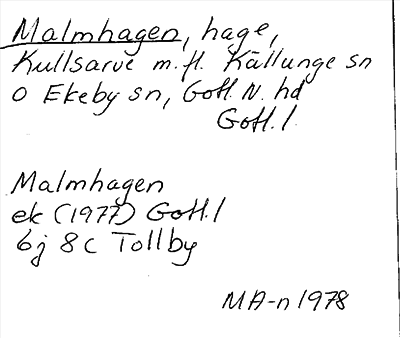 Malmhagen, hage,
Kullsarve m.fl. Källunge sn
o Ekeby sn, Gotl. N. hd
Gotl. l.
Malmhagen
ek (1977) Gotl. l
6j 8c Tollby
MA-n 1978